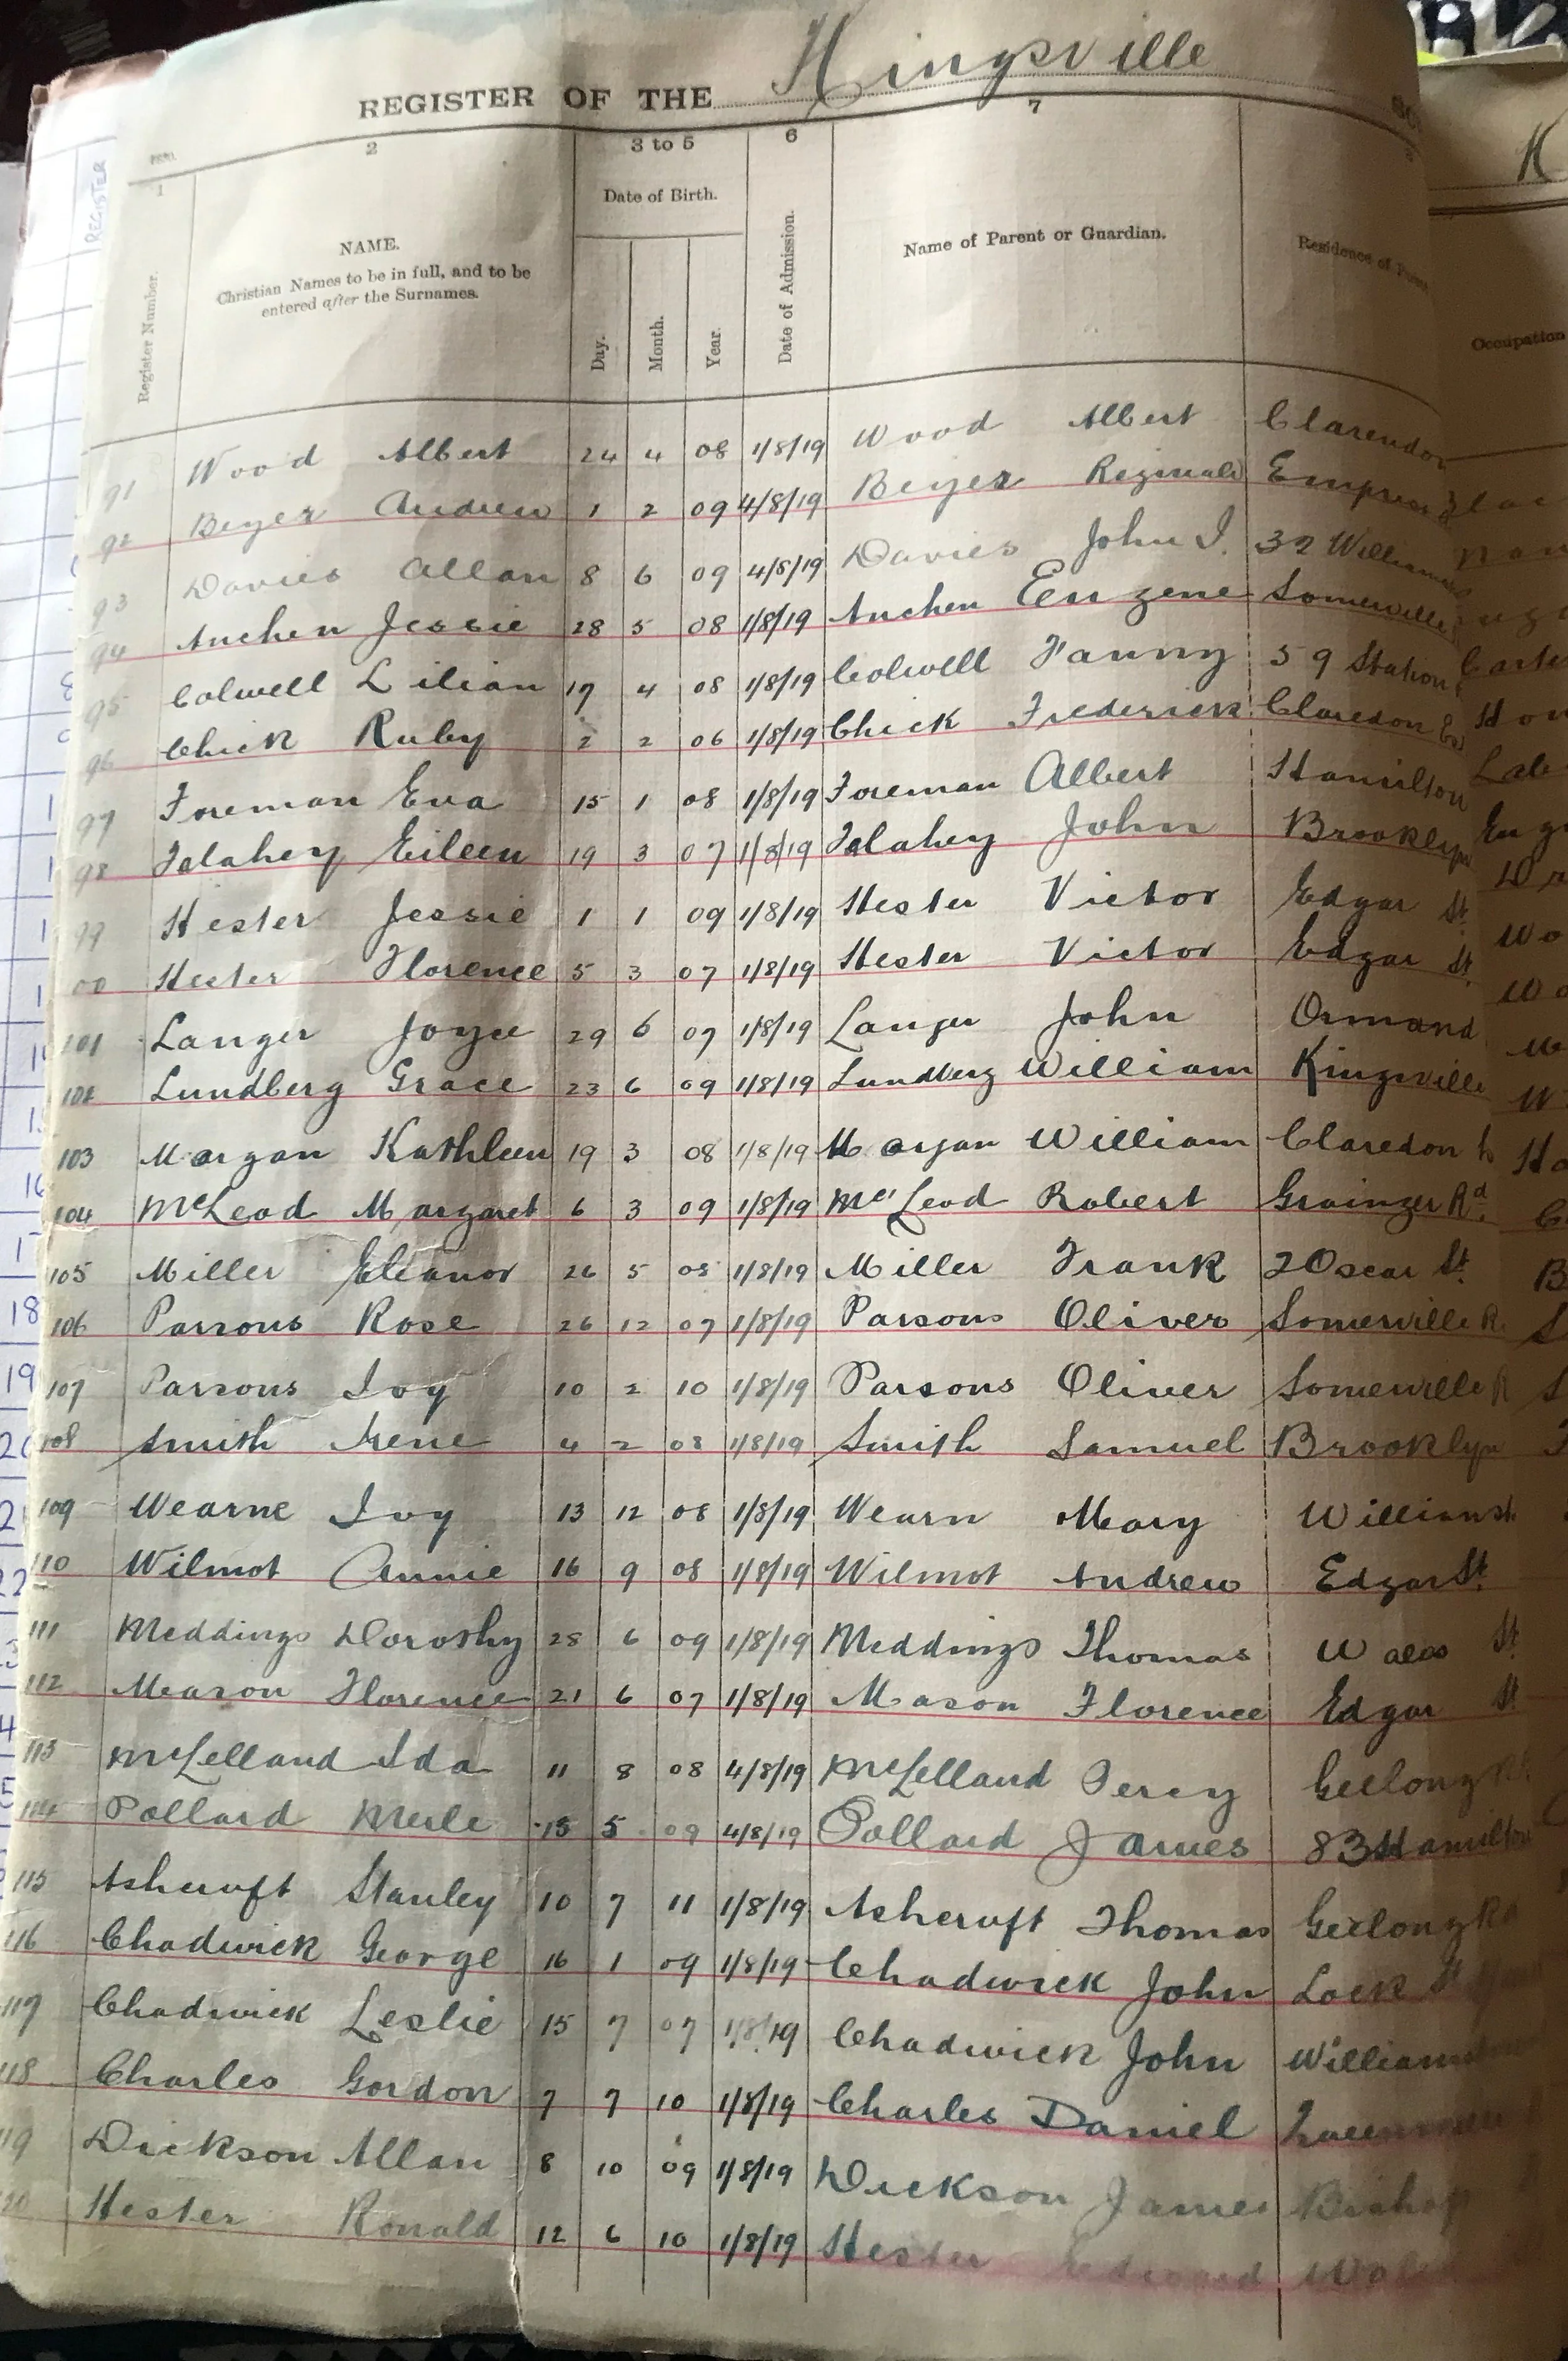 REGISTER OF THE Kingsville
1 2 3 to 5 6 7
Register Number.
NAME.
Christian Names to be in full, and to be
entered after the Surnames.
Date of Birth.
Day. Month. Year.
Date of Admission.
Name of Parent or Guardian.
Residence of
Occupation
REGISTER
91 Wood Albert 24 4 08 1/8/19 Wood Albert Clarendon
92 Beyer Andrew 1 2 09 4/8/19 Beyer Reginald Empress
93 Davies Allan 8 6 09 4/8/19 Davies John I. 32
94 Anchen Jessie 28 5 08 1/8/19 Anchen Eugene Somerville
95 Colwell Lilian 17 4 08 1/8/19 Colwell Fanny 59 Station
96 Chick Ruby 2 2 06 1/8/19 Chick Frederick Claredon
97 Foreman Eva 15 1 08 1/8/19 Foreman Albert Hamilton
98 Falahey Eileen 19 3 07 1/8/19 Falahey John Brooklyn
99 Hester Jessie 1 1 09 1/8/19 Hester Victor Edgar St.
00 Hester Florence 5 3 07 1/8/19 Hester Victor Edgar St.
101 Langer Joyce 29 6 07 1/8/19 Langer John Ormand
102 Lundberg Grace 23 6 09 1/8/19 Lundberg William Kingsville
103 Morgan Kathleen 19 3 08 1/8/19 Morgan William Claredon
104 McLeod Margaret 6 3 09 1/8/19 McLeod Robert Grainger Rd.
105 Miller Eleanor 26 5 08 1/8/19 Miller Frank 2 Oscar St.
106 Parsons Rose 26 12 07 1/8/19 Parsons Oliver Somerville R
107 Parsons Ivy 10 2 10 1/8/19 Parsons Oliver Somerville R
108 Smith Irene 4 2 08 1/8/19 Smith Samuel Brooklyn
109 Wearne Ivy 13 12 08 1/8/19 Wearn Mary Williamst
110 Wilmot Annie 16 9 08 1/8/19 Wilmot Andrew Edgar St.
111 Meddings Dorothy 28 6 09 1/8/19 Meddings Thomas Wales St
112 Meason Florence 21 6 07 1/8/19 Mason Florence Edgar St
113 McLelland Ida 11 8 08 4/8/19 McLelland Percy Geelong Rd
114 Pollard Merle 15 5 09 4/8/19 Pollard James 83 Hamilton
115 Ashcroft Stanley 10 7 11 1/8/19 Ashcroft Thomas Geelong Rd
116 Chadwick George 16 1 09 1/8/19 Chadwick John Lock St
117 Chadwick Leslie 15 7 07 1/8/19 Chadwick John
118 Charles Gordon 7 7 10 1/8/19 Charles Daniel
119 Dickson Allan 8 10 09 1/8/19 Dickson James Bishop
120 Hester Ronald 12 6 10 1/8/19 Hester